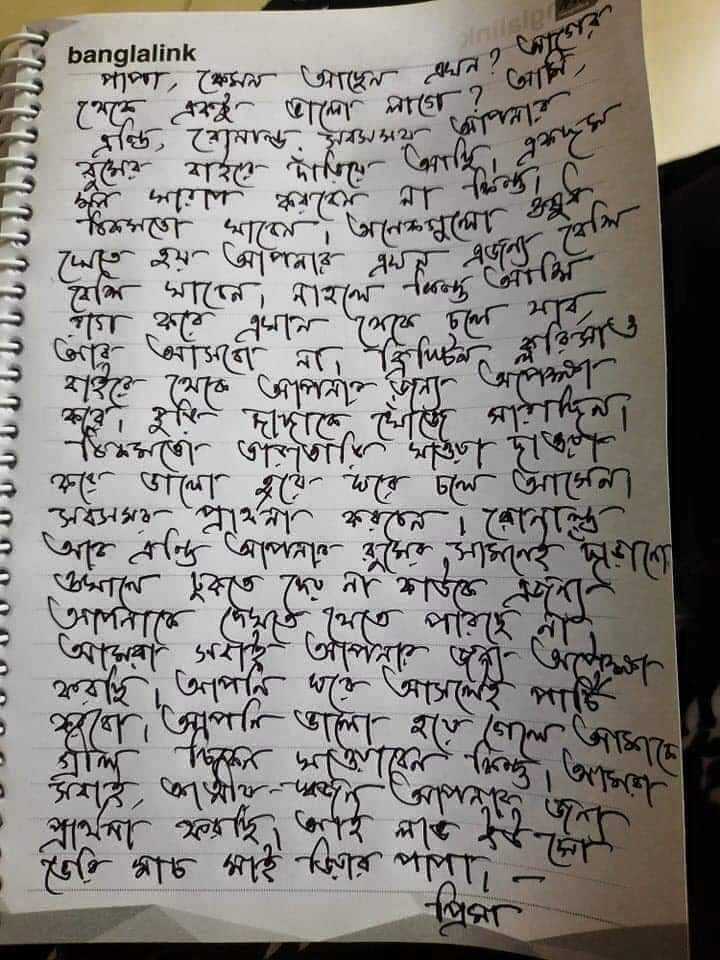 banglalink
পাপা, কেমন আছেন এখন? আগের
থেকে একটু ভালো লাগে? আমি,
এন্ড্রি, রোনাল্ড সবসময় আপনার
রুমের বাইরে দাঁড়িয়ে আছি। একদম
মন খারাপ করবেন না কিন্তু।
ঠিকমতো খাবেন। অনেকগুলো ওষুধ
খেতে হয় আপনার এখন এজন্য বেশি
বেশি খাবেন। নাহলে কিন্তু আমি
রাগ করে এখান থেকে চলে যাব,
আর আসবো না। ক্রিস্টিন ক্লারিসাও
বাইরে থেকে আপনার জন্য অপেক্ষা
করে। দাদাকে খোঁজে সারাদিন।
ঠিকমতো তারাতারি খাওয়া দাওয়া
করে ভালো হয়ে ঘরে চলে আসেন।
সবসময় প্রার্থনা করবেন। রোনাল্ড
আর এন্ড্রি আপনার রুমের সামনেই দাঁড়ানো
ওখানে ঢুকতে দেয় না কাউকে এজন্য
আপনাকে দেখতে যেতে পারছে না।
আমরা সবাই আপনার জন্য অপেক্ষা
করছি। আপনি ঘরে আসলেই পার্টি
করবো। আপনি ভালো হয়ে গেলে আমাকে
গ্রীল চিকেন খাওয়াবেন কিন্তু। আমরা
সবাই, আত্মীয়-স্বজন আপনার জন্য
প্রার্থনা করছি। আই লাভ ইউ সো
ভেরি মাচ মাই ডিয়ার পাপা। —
প্রিমা